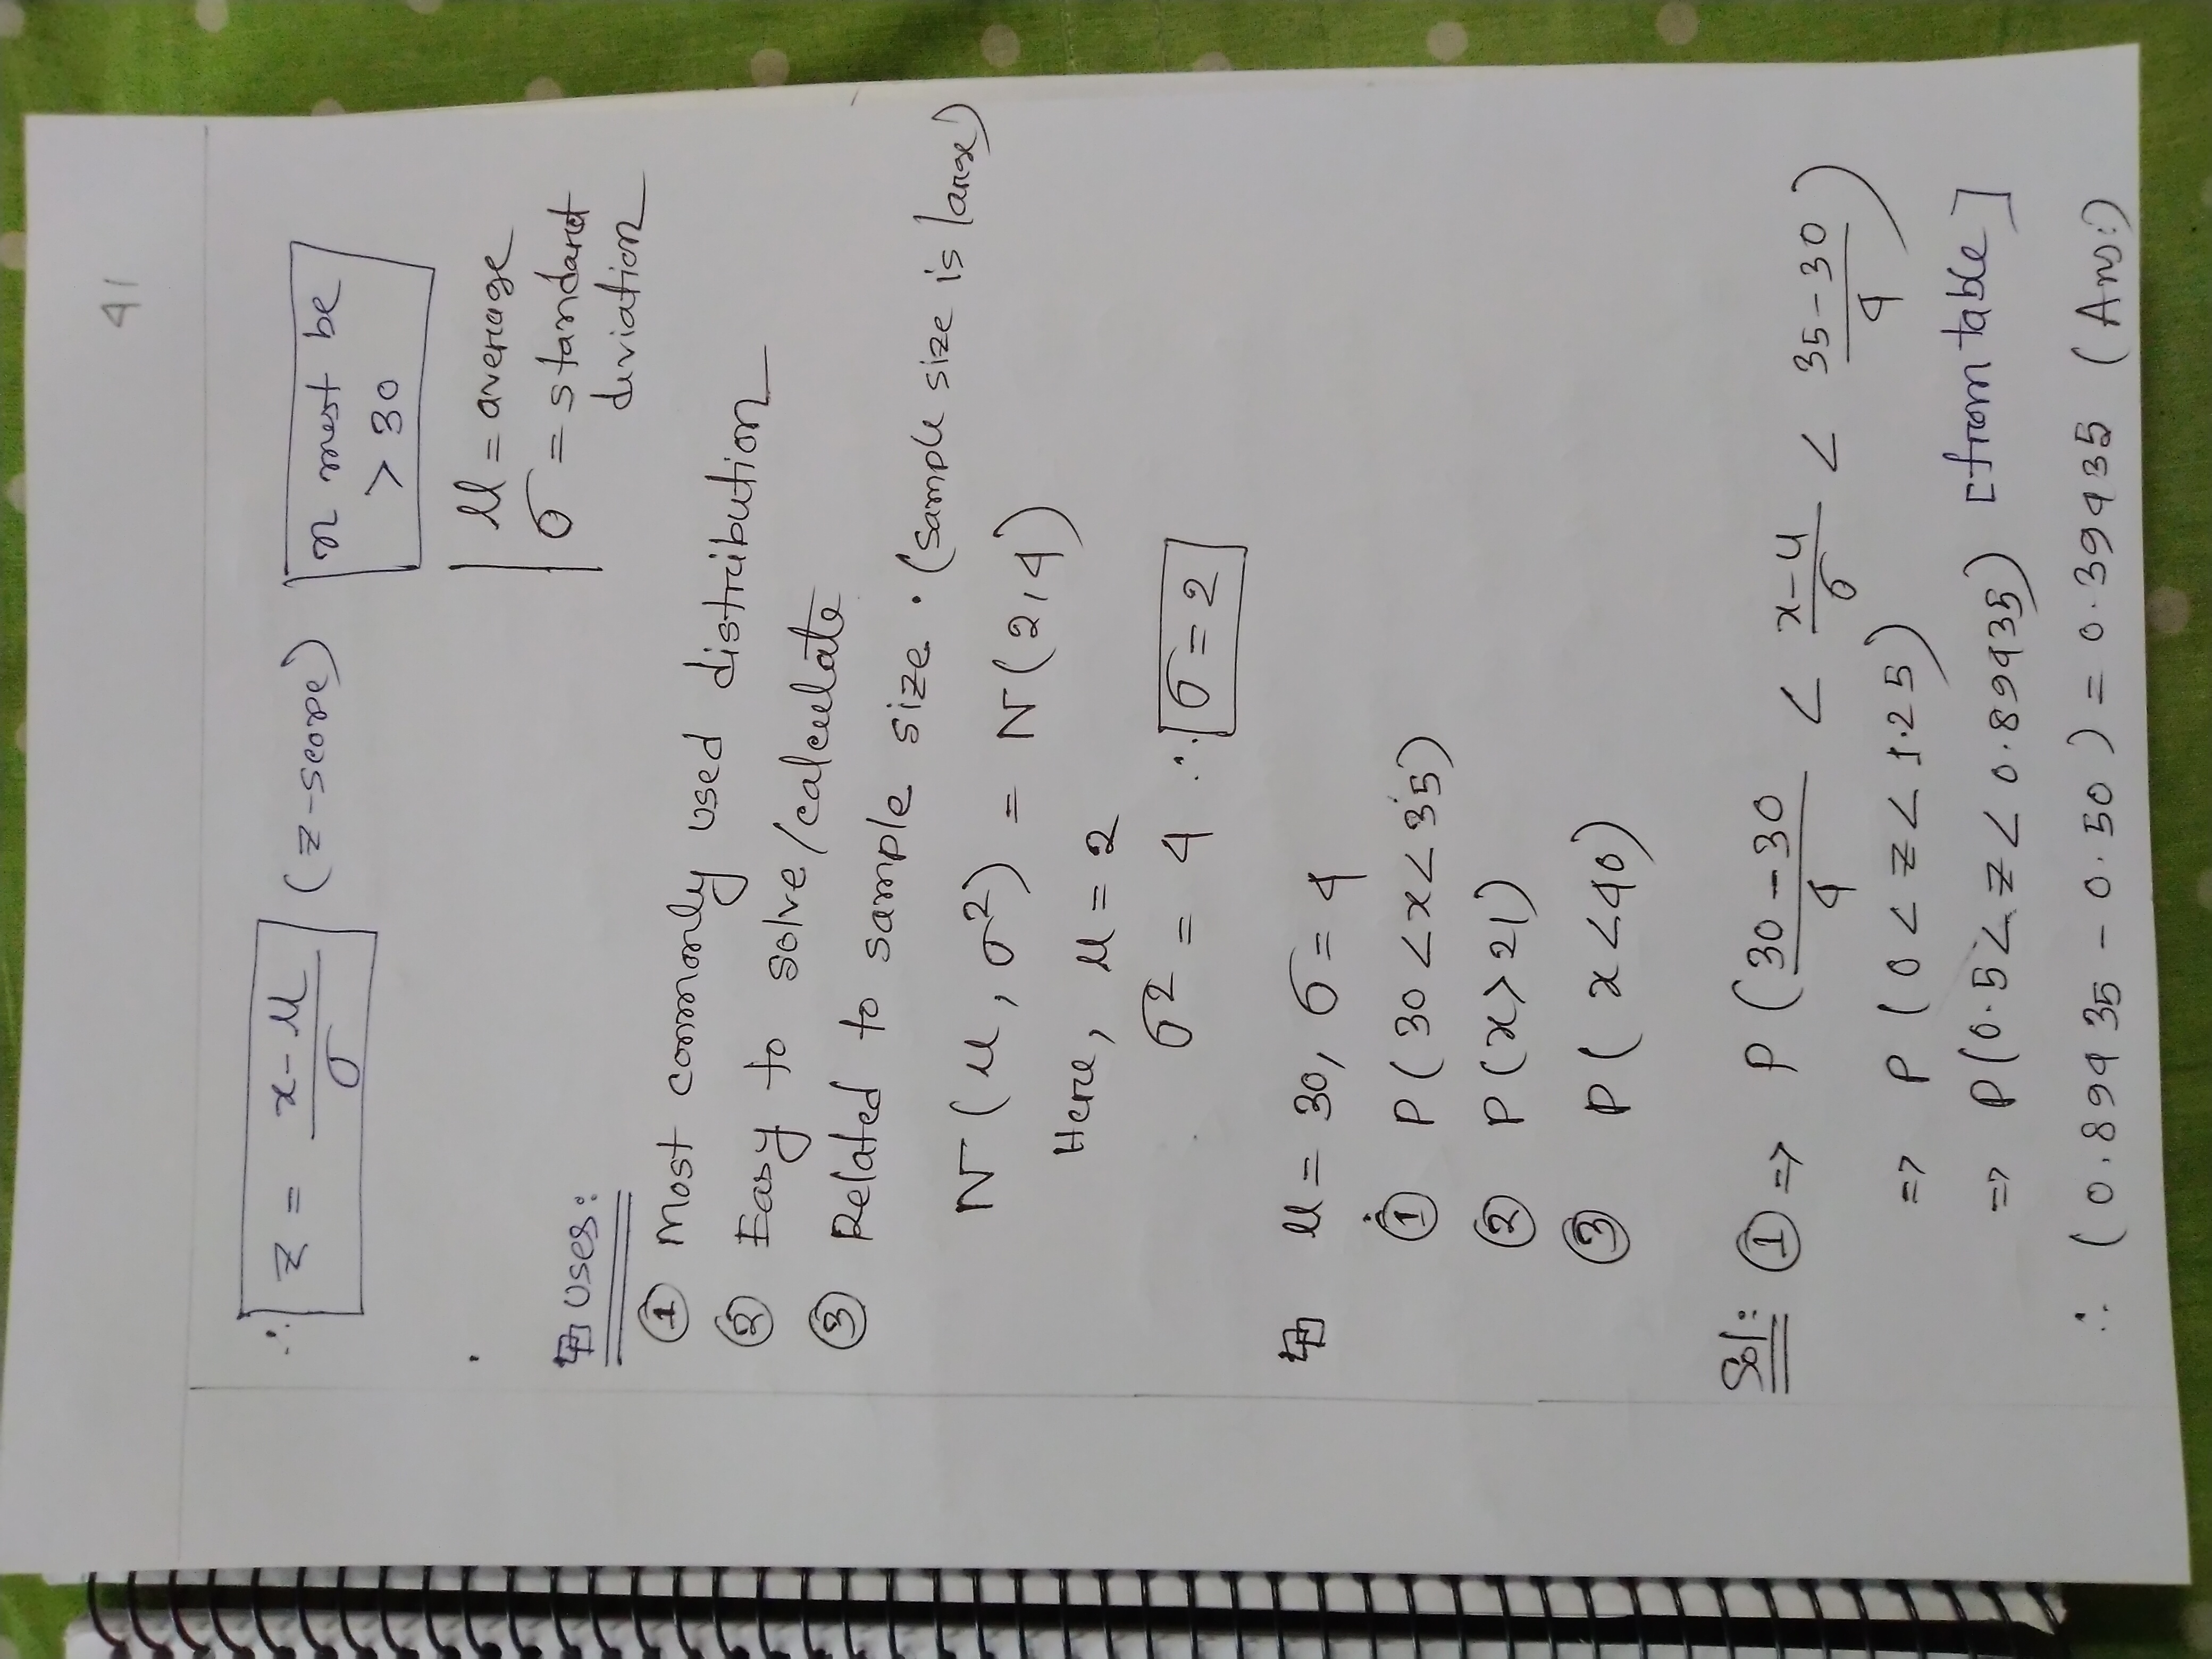 41
∴ z = (x-μ)/σ (z-score) n must be > 30
μ = average
σ = standard deviation
uses:
① Most commonly used distribution
② Easy to solve/calculate
③ Related to sample size. (sample size is large)
N(μ, σ²) = N(2,4)
Here, μ = 2
σ² = 4 ∴ σ = 2
μ = 30, σ = 4
① P(30 < x < 35)
② P(x > 21)
③ P(x < 40)
Sol: ① => P((30-30)/4 < (x-μ)/σ < (35-30)/4)
=> P(0 < z < 1.25)
=> P(0.5 < z < 0.89435) [from table]
∴ (0.89435 - 0.50) = 0.39435 (Ans:)